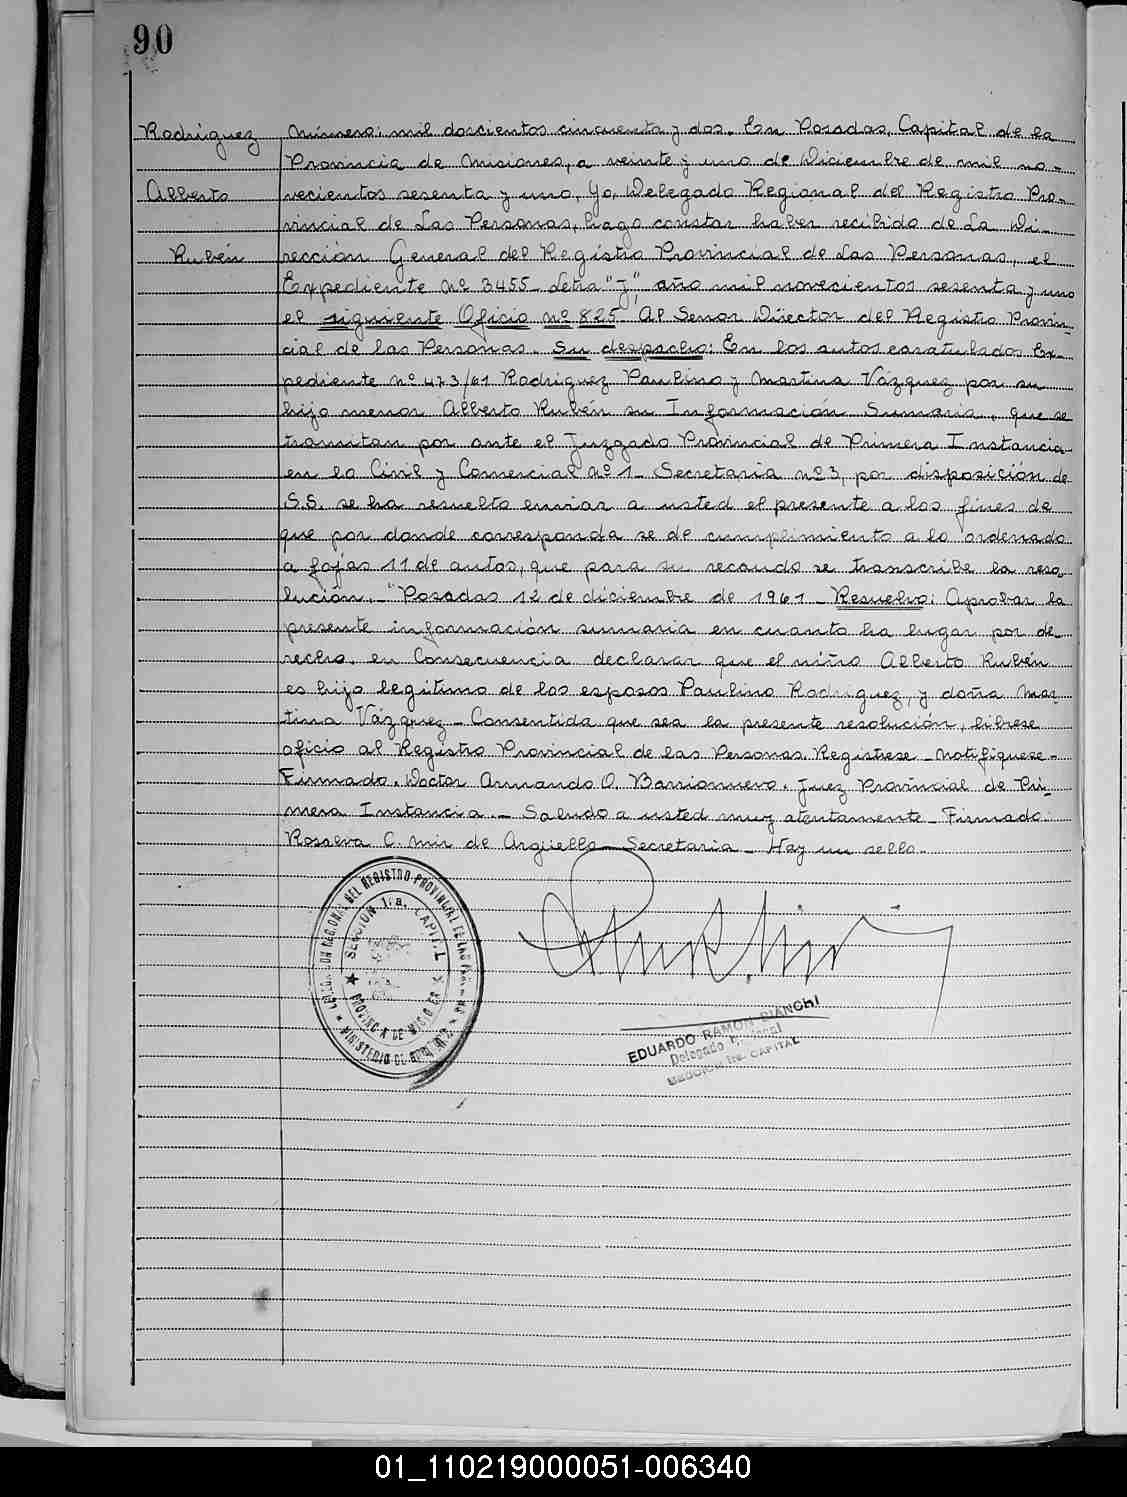 90
Rodriguez
Alberto
Rubén
Número: mil doscientos cincuenta y dos. En Posadas, Capital de la
Provincia de Misiones, a veinte y uno de Diciembre de mil no-
vecientos sesenta y uno, Yo, Delegado Regional del Registro Pro-
vincial de Las Personas, hago constar haber recibido de La Di-
rección General del Registro Provincial de Las Personas, el
Expediente Nº 3455 - Letra "J", año mil novecientos sesenta y uno
el siguiente Oficio nº 825 Al Señor Director del Registro Provin-
cial de las Personas. Su despacho: En los autos caratulados Ex-
pediente nº 473/61 Rodriguez Paulino y Martina Vázquez por su
hijo menor Alberto Rubén su Información Sumaria, que se
tramitan por ante el Juzgado Provincial de Primera Instancia
en lo Civil y Comercial Nº 1 - Secretaria nº 3, por disposición de
S.S. se ha resuelto enviar a usted el presente a los fines de
que por donde corresponda se de cumplimiento a lo ordenado
a fojas 11 de autos, que para su recaudo se transcribe la reso-
lución. - "Posadas 12 de diciembre de 1961 - Resuelvo: Aprobar la
presente información sumaria en cuanto ha lugar por de-
recho, en Consecuencia declarar que el niño Alberto Rubén
es hijo legítimo de los esposos Paulino Rodriguez, y doña Mar-
tina Vázquez - Consentida que sea la presente resolución, librese
oficio al Registro Provincial de las Personas. Registrese - Notifiquese -
Firmado. Doctor Armando O. Barrionuevo. Juez Provincial de Pri-
mera Instancia. - Saludo a usted muy atentamente - Firmado:
Rosalva C. Mir de Argüello - Secretaria - Hay un sello.
DELEGACION REGIONAL DEL REGISTRO PROVINCIAL DE LAS PERSONAS
SECCION 1ra. CAPITAL
PROVINCIA DE MISIONES
MINISTERIO DE GOBIERNO
EDUARDO RAMON BIANCHI
Delegado Regional
SECCION 1ra. CAPITAL
01_110219000051-006340